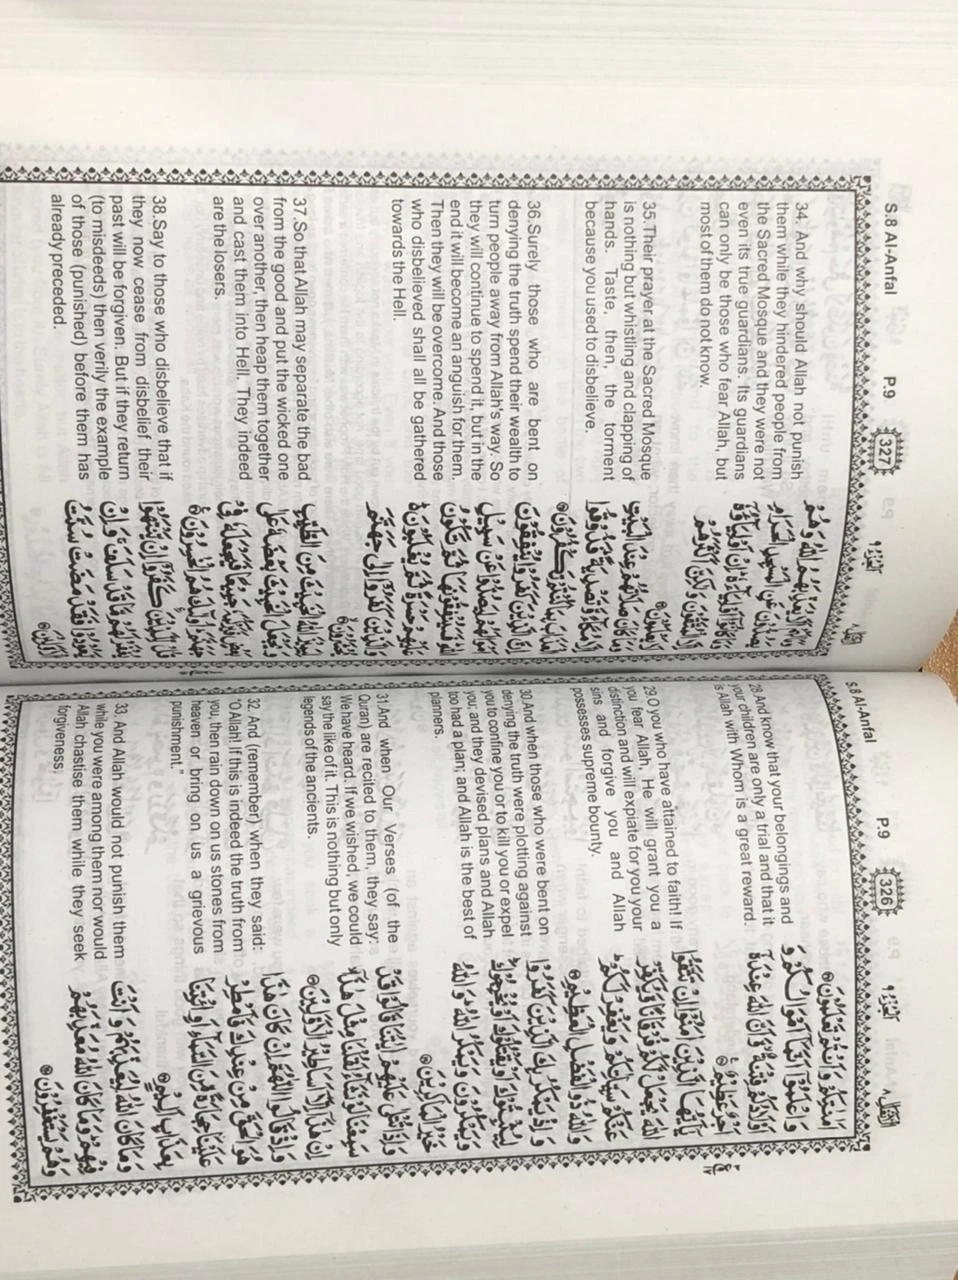 S.8 Al-Anfal P.9 326 اَلْجُزْءُ ٩ اَلْاَنْفَال ٨
اَمٰنٰتِكُمْ وَاَنْتُمْ تَعْلَمُوْنَ ۝
28.And know that your belongings and
your children are only a trial and that it
is Allah with Whom is a great reward.
وَاعْلَمُوْٓا اَنَّمَآ اَمْوَالُكُمْ وَ
اَوْلَادُكُمْ فِتْنَةٌ وَّاَنَّ اللّٰهَ عِنْدَهٗٓ
اَجْرٌ عَظِيْمٌ ۝
29.O you who have attained to faith! If
you fear Allah, He will grant you a
distinction and will expiate for you your
sins and forgive you and Allah
possesses supreme bounty.
يٰٓاَيُّهَا الَّذِيْنَ اٰمَنُوْٓا اِنْ تَتَّقُوا
اللّٰهَ يَجْعَلْ لَّكُمْ فُرْقَانًا وَّيُكَفِّرْ
عَنْكُمْ سَيِّاٰتِكُمْ وَيَغْفِرْ لَكُمْ
وَاللّٰهُ ذُو الْفَضْلِ الْعَظِيْمِ ۝
30.And when those who were bent on
denying the truth were plotting against
you to confine you or to kill you or expel
you; and they devised plans and Allah
too had a plan; and Allah is the best of
planners.
وَاِذْ يَمْكُرُ بِكَ الَّذِيْنَ كَفَرُوْا
لِيُثْبِتُوْكَ اَوْ يَقْتُلُوْكَ اَوْ يُخْرِجُوْكَ
وَيَمْكُرُوْنَ وَيَمْكُرُ اللّٰهُ وَاللّٰهُ
خَيْرُ الْمٰكِرِيْنَ ۝
31.And when Our Verses (of the
Quran) are recited to them, they say:
We have heard. If we wished, we could
say the like of it. This is nothing but only
legends of the ancients.
وَاِذَا تُتْلٰى عَلَيْهِمْ اٰيٰتُنَا قَالُوْا قَدْ
سَمِعْنَا لَوْ نَشَآءُ لَقُلْنَا مِثْلَ هٰذَآ
اِنْ هٰذَآ اِلَّآ اَسَاطِيْرُ الْاَوَّلِيْنَ ۝
32. And (remember) when they said:
"O Allah! If this is indeed the truth from
you, then rain down on us stones from
heaven or bring on us a grievous
punishment."
وَاِذْ قَالُوا اللّٰهُمَّ اِنْ كَانَ هٰذَا
هُوَ الْحَقَّ مِنْ عِنْدِكَ فَاَمْطِرْ
عَلَيْنَا حِجَارَةً مِّنَ السَّمَآءِ اَوِ ائْتِنَا
بِعَذَابٍ اَلِيْمٍ ۝
33. And Allah would not punish them
while you were among them nor would
Allah chastise them while they seek
forgiveness,
وَمَا كَانَ اللّٰهُ لِيُعَذِّبَهُمْ وَاَنْتَ
فِيْهِمْ وَمَا كَانَ اللّٰهُ مُعَذِّبَهُمْ
وَهُمْ يَسْتَغْفِرُوْنَ ۝
S.8 Al-Anfal P.9 327 اَلْجُزْءُ ٩ اَلْاَنْفَال ٨
34. And why should Allah not punish
them while they hindered people from
the Sacred Mosque and they were not
even its true guardians. Its guardians
can only be those who fear Allah, but
most of them do not know.
وَمَا لَهُمْ اَلَّا يُعَذِّبَهُمُ اللّٰهُ وَهُمْ
يَصُدُّوْنَ عَنِ الْمَسْجِدِ الْحَرَامِ
وَمَا كَانُوْٓا اَوْلِيَآءَهٗ اِنْ اَوْلِيَآؤُهٗٓ
اِلَّا الْمُتَّقُوْنَ وَلٰكِنَّ اَكْثَرَهُمْ
لَا يَعْلَمُوْنَ ۝
35.Their prayer at the Sacred Mosque
is nothing but whistling and clapping of
hands. Taste, then, the torment
because you used to disbelieve.
وَمَا كَانَ صَلَاتُهُمْ عِنْدَ الْبَيْتِ
اِلَّا مُكَآءً وَّتَصْدِيَةً فَذُوْقُوا
الْعَذَابَ بِمَا كُنْتُمْ تَكْفُرُوْنَ ۝
36.Surely those who are bent on
denying the truth spend their wealth to
turn people away from Allah's way. So
they will continue to spend it, but in the
end it will become an anguish for them.
Then they will be overcome. And those
who disbelieved shall all be gathered
towards the Hell.
اِنَّ الَّذِيْنَ كَفَرُوْا يُنْفِقُوْنَ
اَمْوَالَهُمْ لِيَصُدُّوْا عَنْ سَبِيْلِ
اللّٰهِ فَسَيُنْفِقُوْنَهَا ثُمَّ تَكُوْنُ
عَلَيْهِمْ حَسْرَةً ثُمَّ يُغْلَبُوْنَ
وَالَّذِيْنَ كَفَرُوْٓا اِلٰى جَهَنَّمَ
يُحْشَرُوْنَ ۝
37.So that Allah may separate the bad
from the good and put the wicked one
over another, then heap them together
and cast them into Hell. They indeed
are the losers.
لِيَمِيْزَ اللّٰهُ الْخَبِيْثَ مِنَ الطَّيِّبِ
وَيَجْعَلَ الْخَبِيْثَ بَعْضَهٗ عَلٰى
بَعْضٍ فَيَرْكُمَهٗ جَمِيْعًا فَيَجْعَلَهٗ فِيْ
جَهَنَّمَ اُولٰٓئِكَ هُمُ الْخٰسِرُوْنَ ۝
38.Say to those who disbelieve that if
they now cease from disbelief their
past will be forgiven. But if they return
(to misdeeds) then verily the example
of those (punished) before them has
already preceded.
قُلْ لِّلَّذِيْنَ كَفَرُوْٓا اِنْ يَّنْتَهُوْا
يُغْفَرْ لَهُمْ مَّا قَدْ سَلَفَ وَاِنْ
يَّعُوْدُوْا فَقَدْ مَضَتْ سُنَّتُ
الْاَوَّلِيْنَ ۝